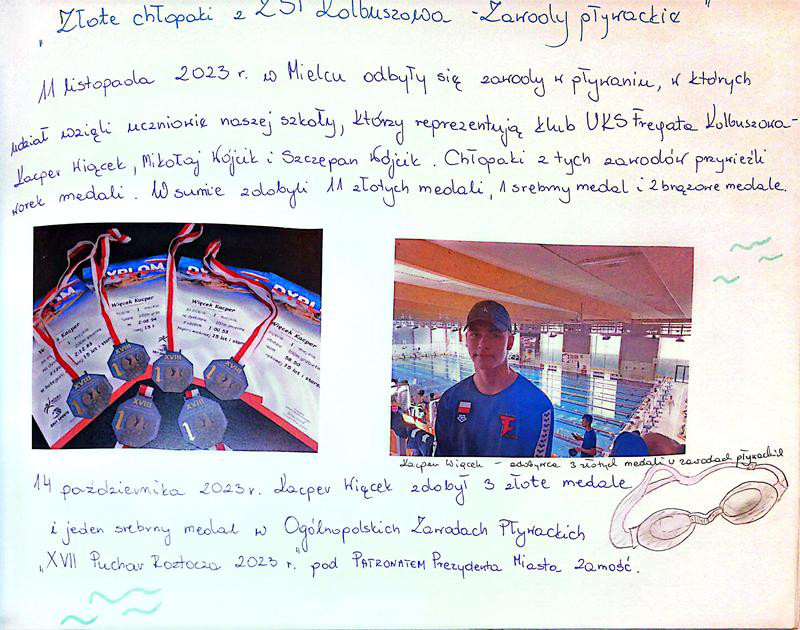 "Złote chłopaki z ZST Kolbuszowa - Zawody pływackie"
11 listopada 2023 r. w Mielcu odbyły się zawody w pływaniu, w których
udział wzięli uczniowie naszej szkoły, którzy reprezentują klub UKS Fregata Kolbuszowa -
Kacper Więcek, Mikołaj Wójcik i Szczepan Wójcik. Chłopaki z tych zawodów przywieźli
worek medali. W sumie zdobyli 11 złotych medali, 1 srebrny medal i 2 brązowe medale.
DYPLOM
DYPL
Więcek Kacper
Więcek Kacper
Kacper
Więcek Kacper
XVIII
XVIII
XVIII
XVIII
1
1
1
1
Kacper Więcek - zdobywca 3 złotych medali w zawodach pływackich
14 października 2023 r. Kacper Więcek zdobył 3 złote medale
i jeden srebrny medal w Ogólnopolskich Zawodach Pływackich
"XVII Puchar Roztocza 2023 r." pod PATRONATEM Prezydenta Miasta Zamość.